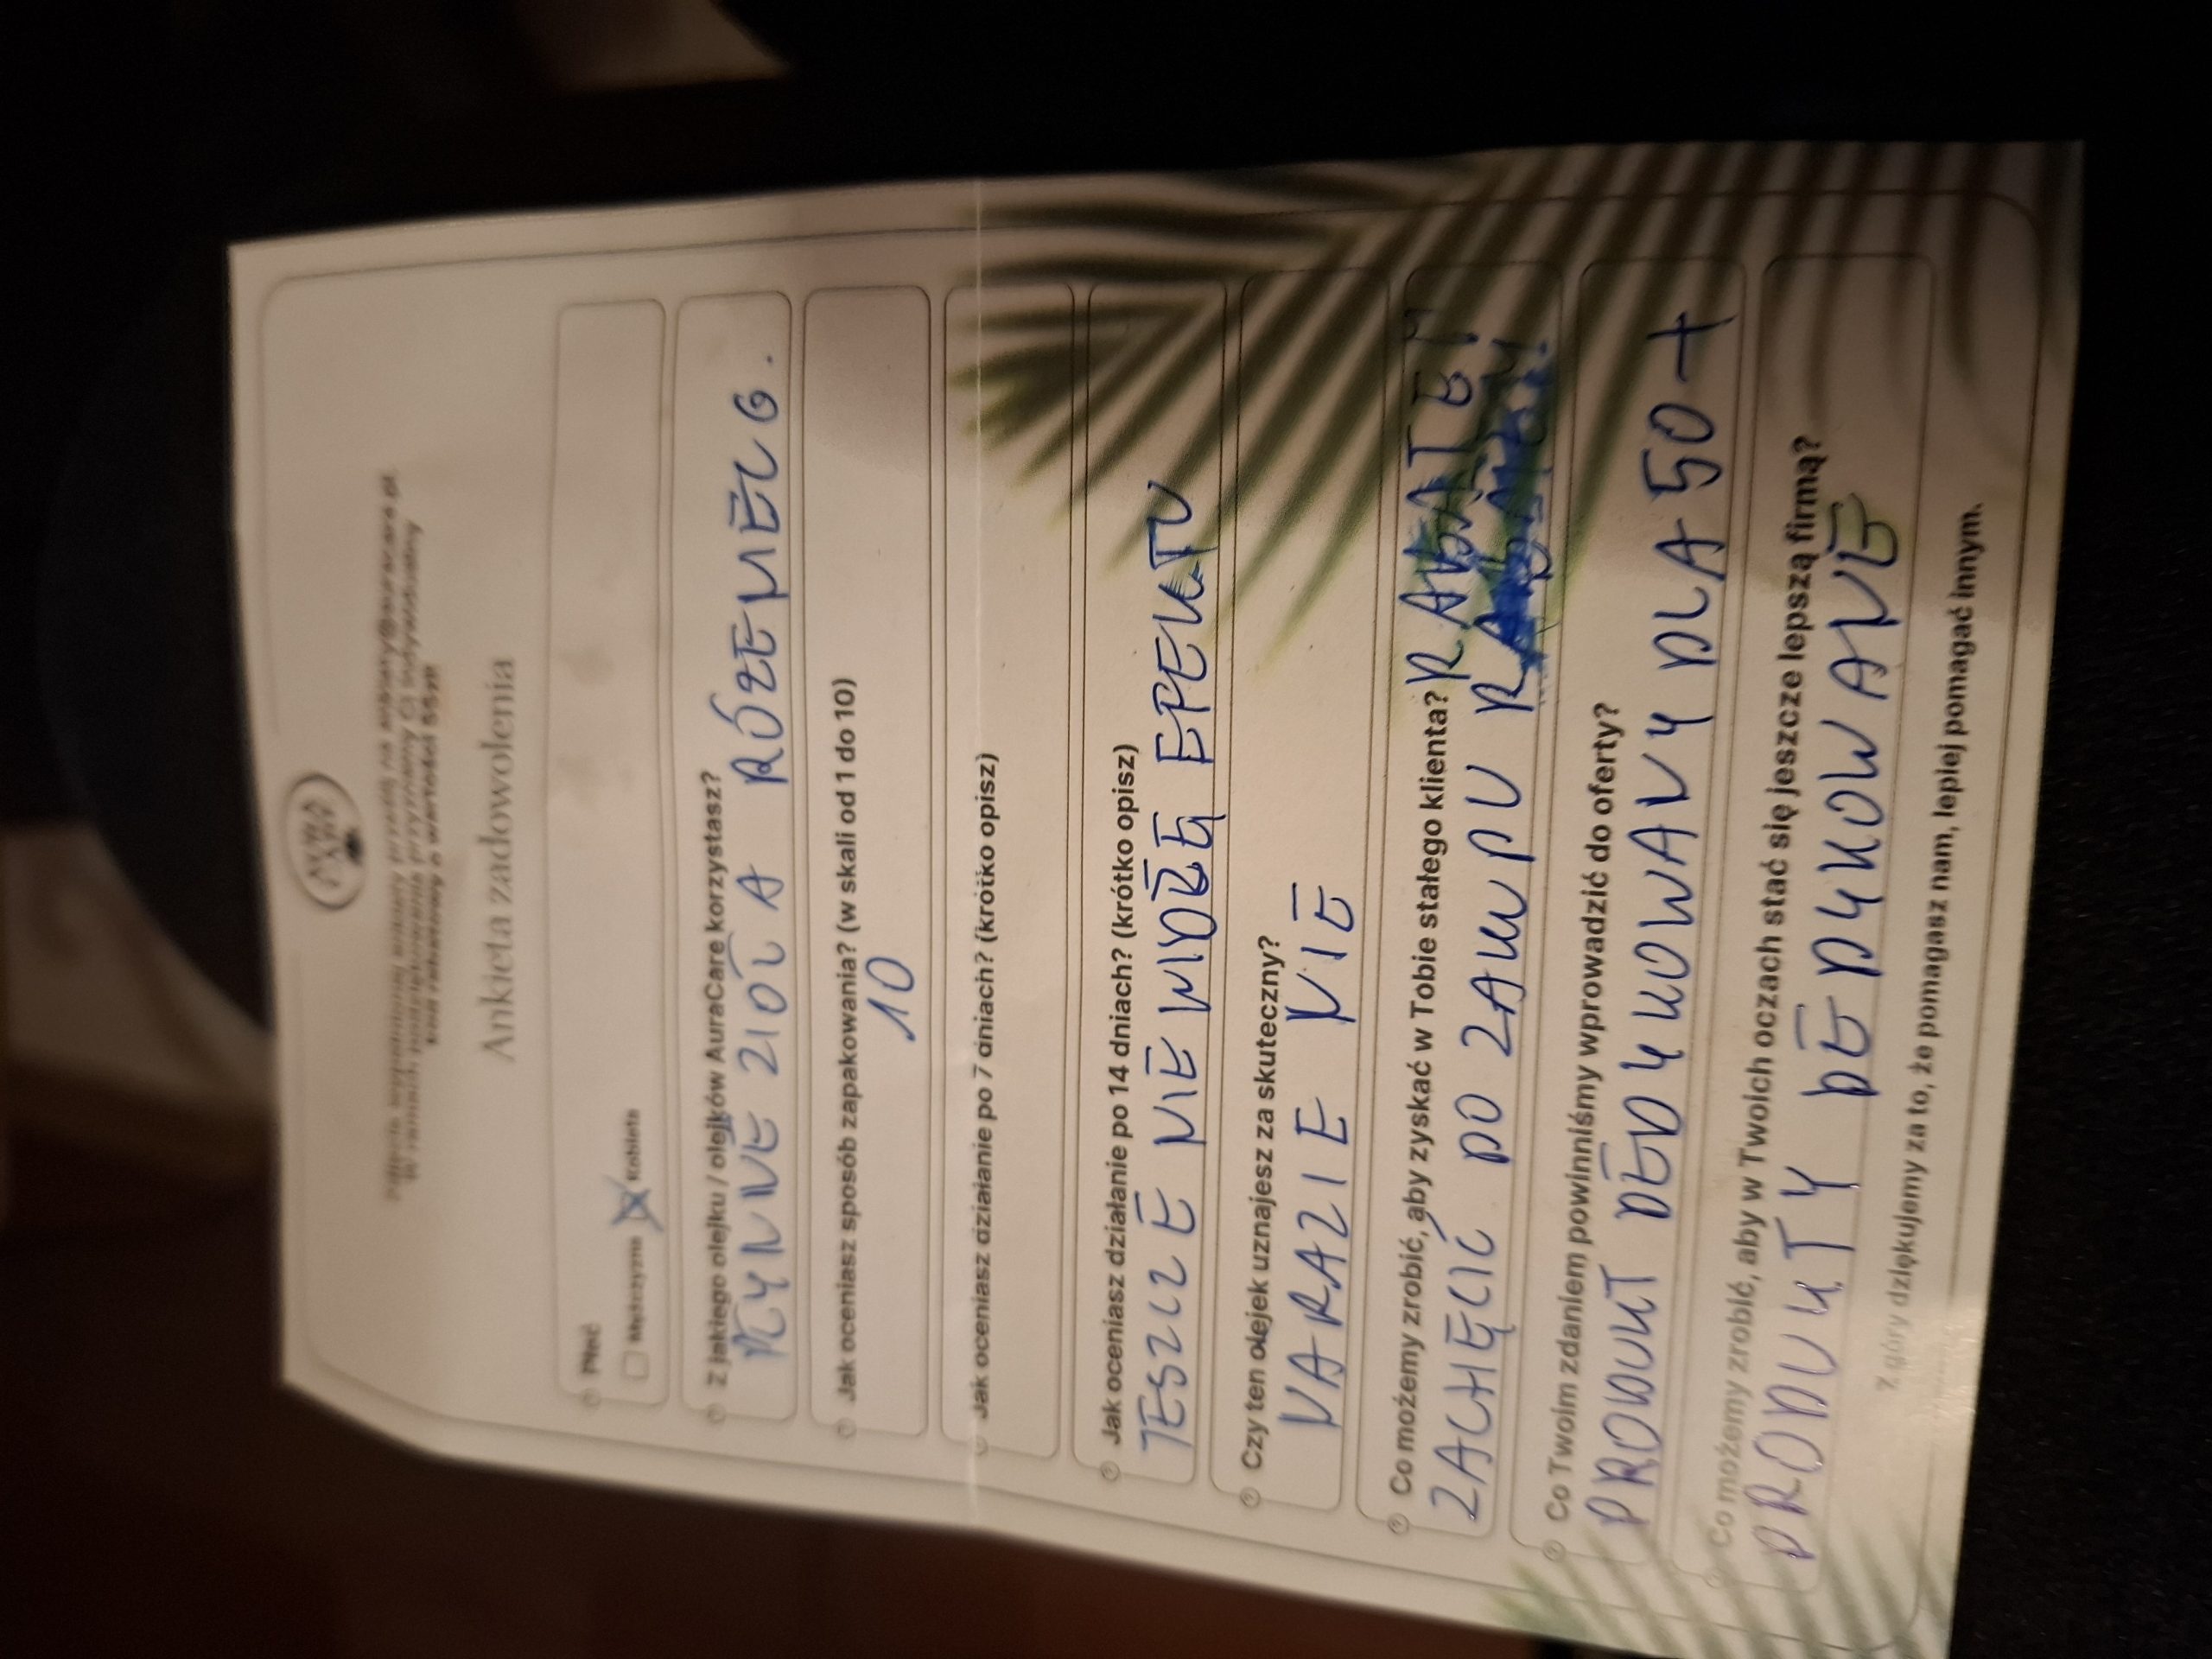 AURA CARE
Zdjęcie wypełnionej ankiety prześlij na ankiety@auracare.pl
W ramach podziękowania przyznamy Ci indywidualny
kod rabatowy o wartości
Ankieta zadowolenia
Płeć
Mężczyzna Kobieta
Z jakiego olejku / olejków AuraCare korzystasz?
PŁYNNE ZŁOTO A RÓŻEMLECG.
Jak oceniasz sposób zapakowania? (w skali od 1 do 10)
10
Jak oceniasz działanie po 7 dniach? (krótko opisz)
Jak oceniasz działanie po 14 dniach? (krótko opisz)
JESZCZE NIE WIDZĘ EFEKTU
Czy ten olejek uznajesz za skuteczny?
NARAZIE NIE
Co możemy zrobić, aby zyskać w Tobie stałego klienta? RABATEM
ZACHĘCIĆ DO ZAKUPU
Co Twoim zdaniem powinniśmy wprowadzić do oferty?
PRODUKT DEDYKOWANY DLA 50+
Co możemy zrobić, aby w Twoich oczach stać się jeszcze lepszą firmą?
PRODUKTY DEDYKOWANE
Z góry dziękujemy za to, że pomagasz nam, lepiej pomagać innym.